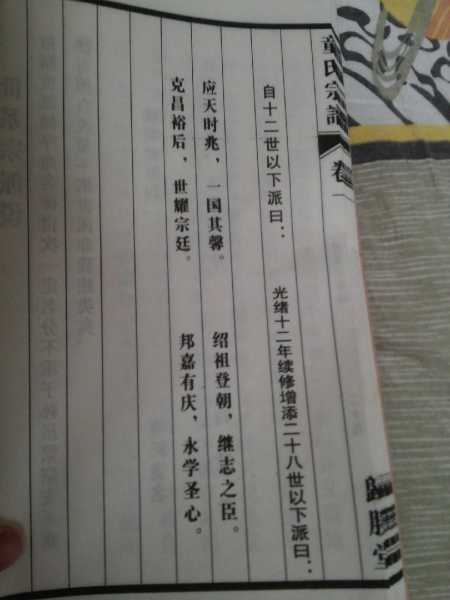 童氏宗譜
卷一
堂
自十二世以下派曰：
应天时兆，一国其馨。
克昌裕后，世耀宗廷。
光绪十二年续修增添二十八世以下派曰：
绍祖登朝，继志之臣。
邦嘉有庆，永学圣心。